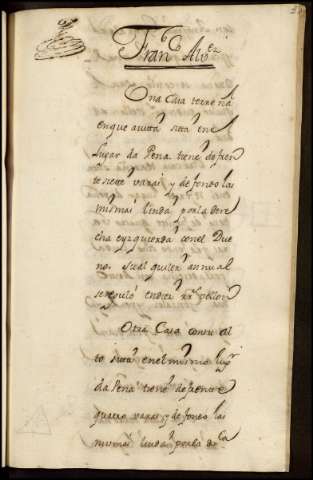 Fran.co Alv.ez
Una Casa terrena
en que avita sita en el
lugar da Pena tiene de fren
te siete varas y de fondo las
mismas linda por la dere
cha e yzquierda con el Due
no. Su alquiler annual
se reguló en diez rr.s vellon
Otra Casa con su al
to sita en el mismo lug.r
da Pena tiene de frente
quatro varas y de fondo las
mismas linda por la d.ra